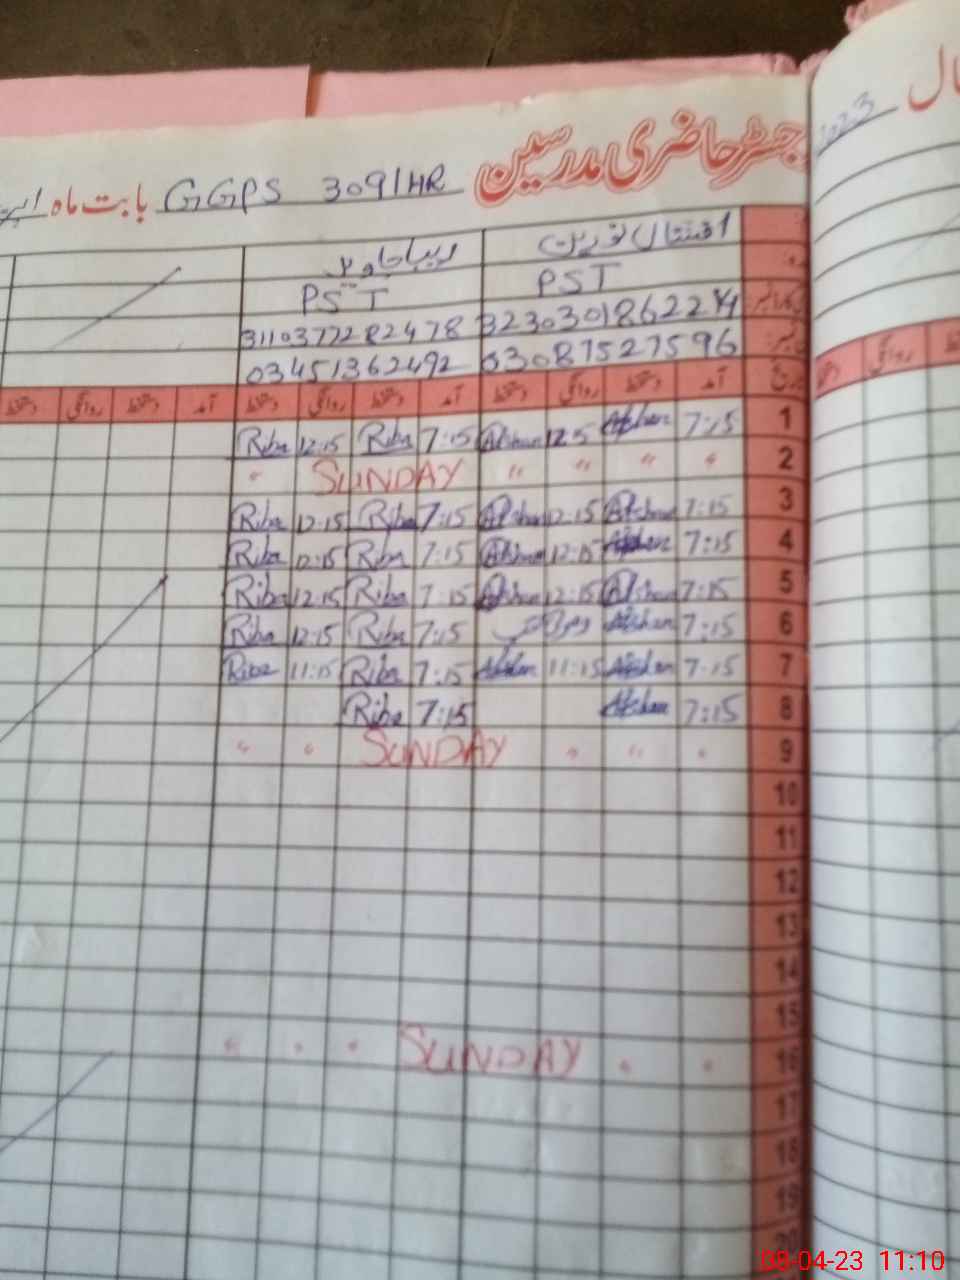 رجسٹر حاضری مدرسین GGPS 309/HR بابت ماہ
2023 سال
افشاں نورین ریبا جاوید
PST PST
3230301862274 3110372282478
03087527596 03451362492
آمد دستخط روانگی دستخط آمد دستخط روانگی دستخط آمد دستخط روانگی دستخط
1 7:15 Afshan 12:5 Afshan 7:15 Riba 12:15 Riba
2 " " " " SUNDAY "
3 7:15 Afshan 12:15 Afshan 7:15 Riba 12:15 Riba
4 7:15 Afshan 12:15 Afshan 7:15 Riba 12:15 Riba
5 7:15 Afshan 12:15 Afshan 7:15 Riba 12:15 Riba
6 7:15 Afshan 7:15 Riba 12:15 Riba
7 7:15 Afshan 11:15 Afshan 7:15 Riba 11:15 Riba
8 7:15 Afshan 7:15 Riba
9 " " " SUNDAY " "
10
11
12
13
14
15
16 " " SUNDAY " " "
17
18
19
20
08-04-23 11:10